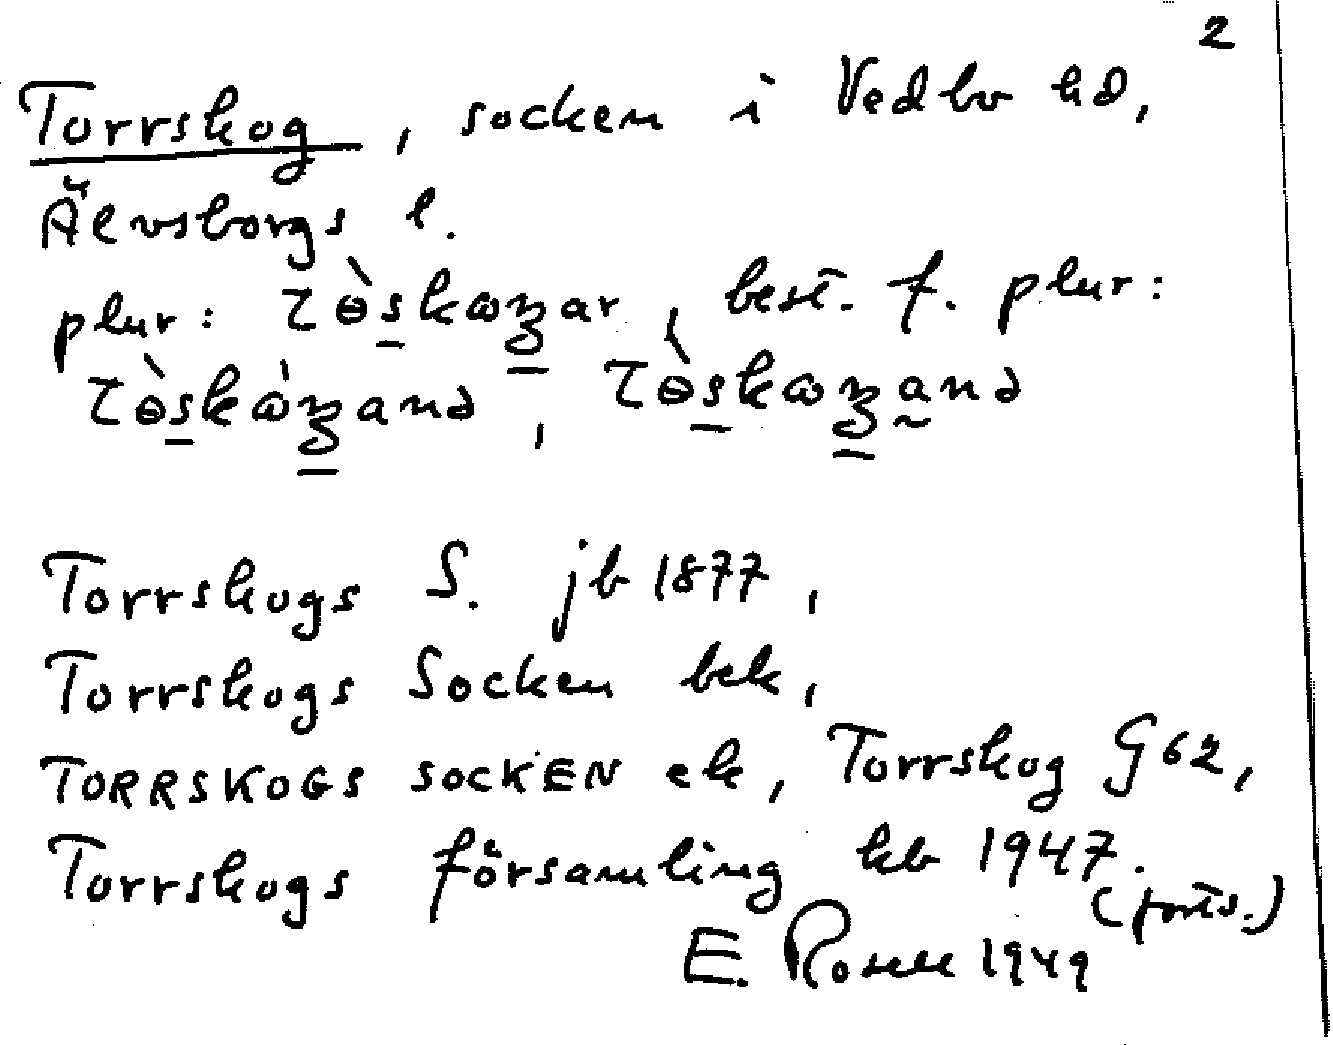 2
Torrskog, socken i Vedbo hd,
Älvsborgs l.
plur: tɵ̀s̲kωʒ̲ar, best. f. plur:
tɵ̀s̲kὼʒ̲anə, tɵ̀s̲kωʒ̲a̰nə
Torrskogs S. jb 1877,
Torrskogs Socken bek,
TORRSKOGS SOCKEN ek, Torrskog G62,
Torrskogs församling kb 1947.
(forts.)
E. Rosell 1949